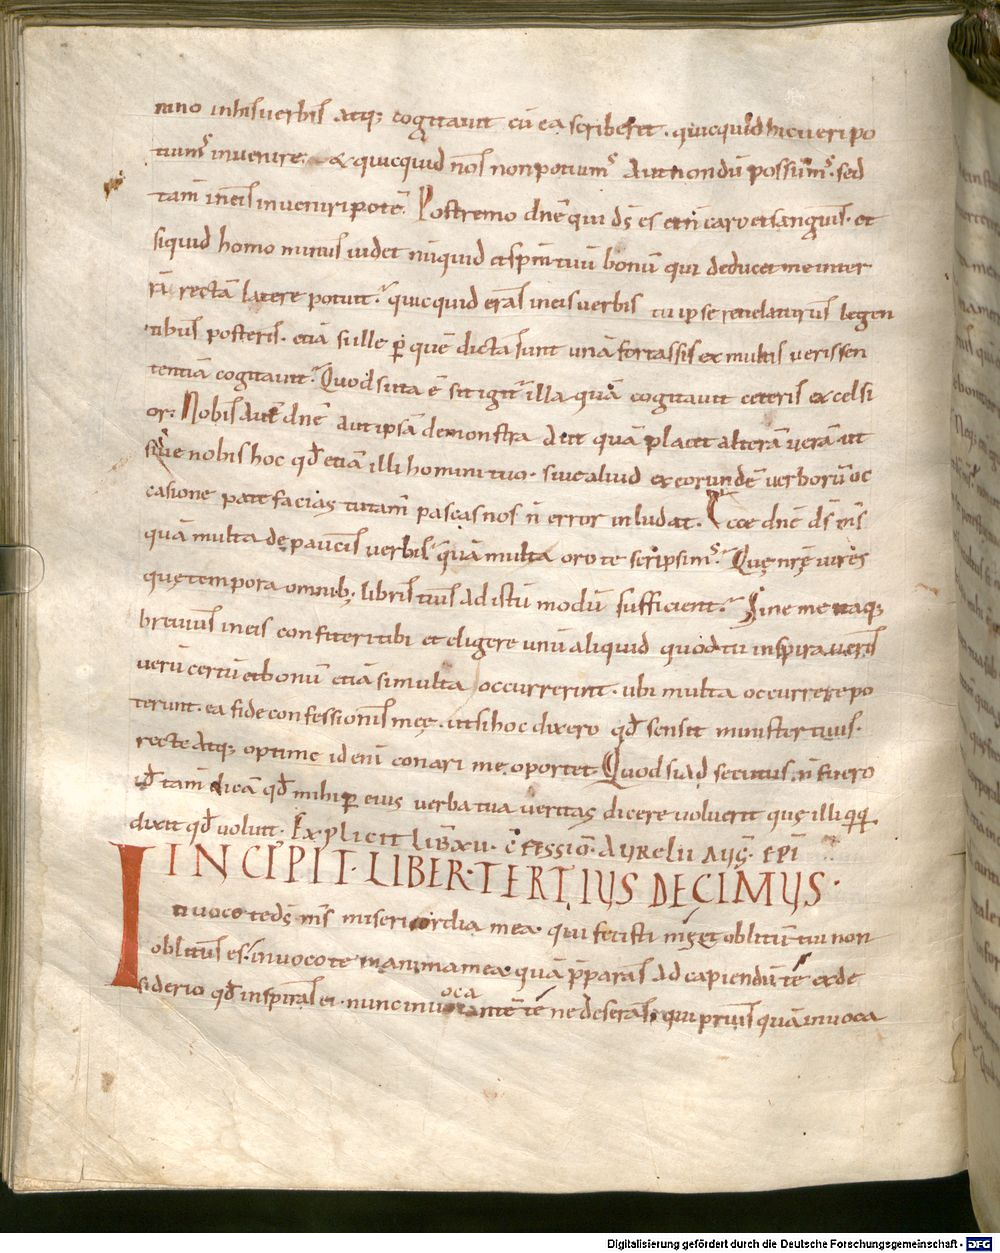 mno inhis verbis atq; cogitavit cū ea scriberet. quicquid hic veri po
tuim᾽ invenire; & quicquid nos non potuim᾽ aut nondū possum᾽. sed
tam̄ in eis inveniri potē. Postremo dn̄e qui ds̄ es et n̄ caro et sanguis. et
siquid homo minus videt nūquid et sp̄m tuū bonū qui deducet me inter
rā rectā latere potuit. quicquid eras in eis verbis tu ipse revelaturus legen
tibus posteris. etiā si ille p̄ quē dicta sunt unā fortassis ex multis veris sen
tentiā cogitavit. Quod si ita ē sit igit᾽ illa quā cogitavit ceteris excelsi
or; Nobis aut̄ dn̄e aut ipsā demonstra aut quā placet alterā verā. ut
sive nobis hoc qd̄ etiā illi homini tuo. sive aliud ex eorundē verborū oc
casione patefacias tu tam̄ pascas nos n̄ error inludat. Ecce dn̄e ds̄ m̄s
quā multa dę paucis verbis quā multa oro te scripsim᾽. Quę nr̄ę vires
quę tempora omnib; libris tuis ad istū modū sufficient. Sine me itaq;
brevius in eis confiteri tibi et eligere unū aliquid quod tu inspiraveris
verū certū et bonū etiā si multa occurrerint. ubi multa occurrere po
terunt. ea fide confessionis meę. ut si hoc dixero qd̄ sensit minister tuus.
recte atq; optime id enī conari me oportet. Quod si adsecutus n̄ fuero
id tam̄ dicā qd̄ mihi p̄ eius verba tua veritas dicere voluerit quę illi qq̄.
dixit qd̄ voluit. Explicit lib̄ xii. c̄fessiō. Aurelii Auḡ. epī
INCIPIT. LIBER. TERTIUS DECIMUS.
Invoco te ds̄ m̄s misericordia mea. qui fecisti me et oblitū tui non
oblitus es. invoco te in animam meā quā p̄paras ad capiendū te ex de
siderio qd̄ inspiras ei. nunc invocantē te ne deseras qui prius quā invoca
Digitalisierung gefördert durch die Deutsche Forschungsgemeinschaft - DFG